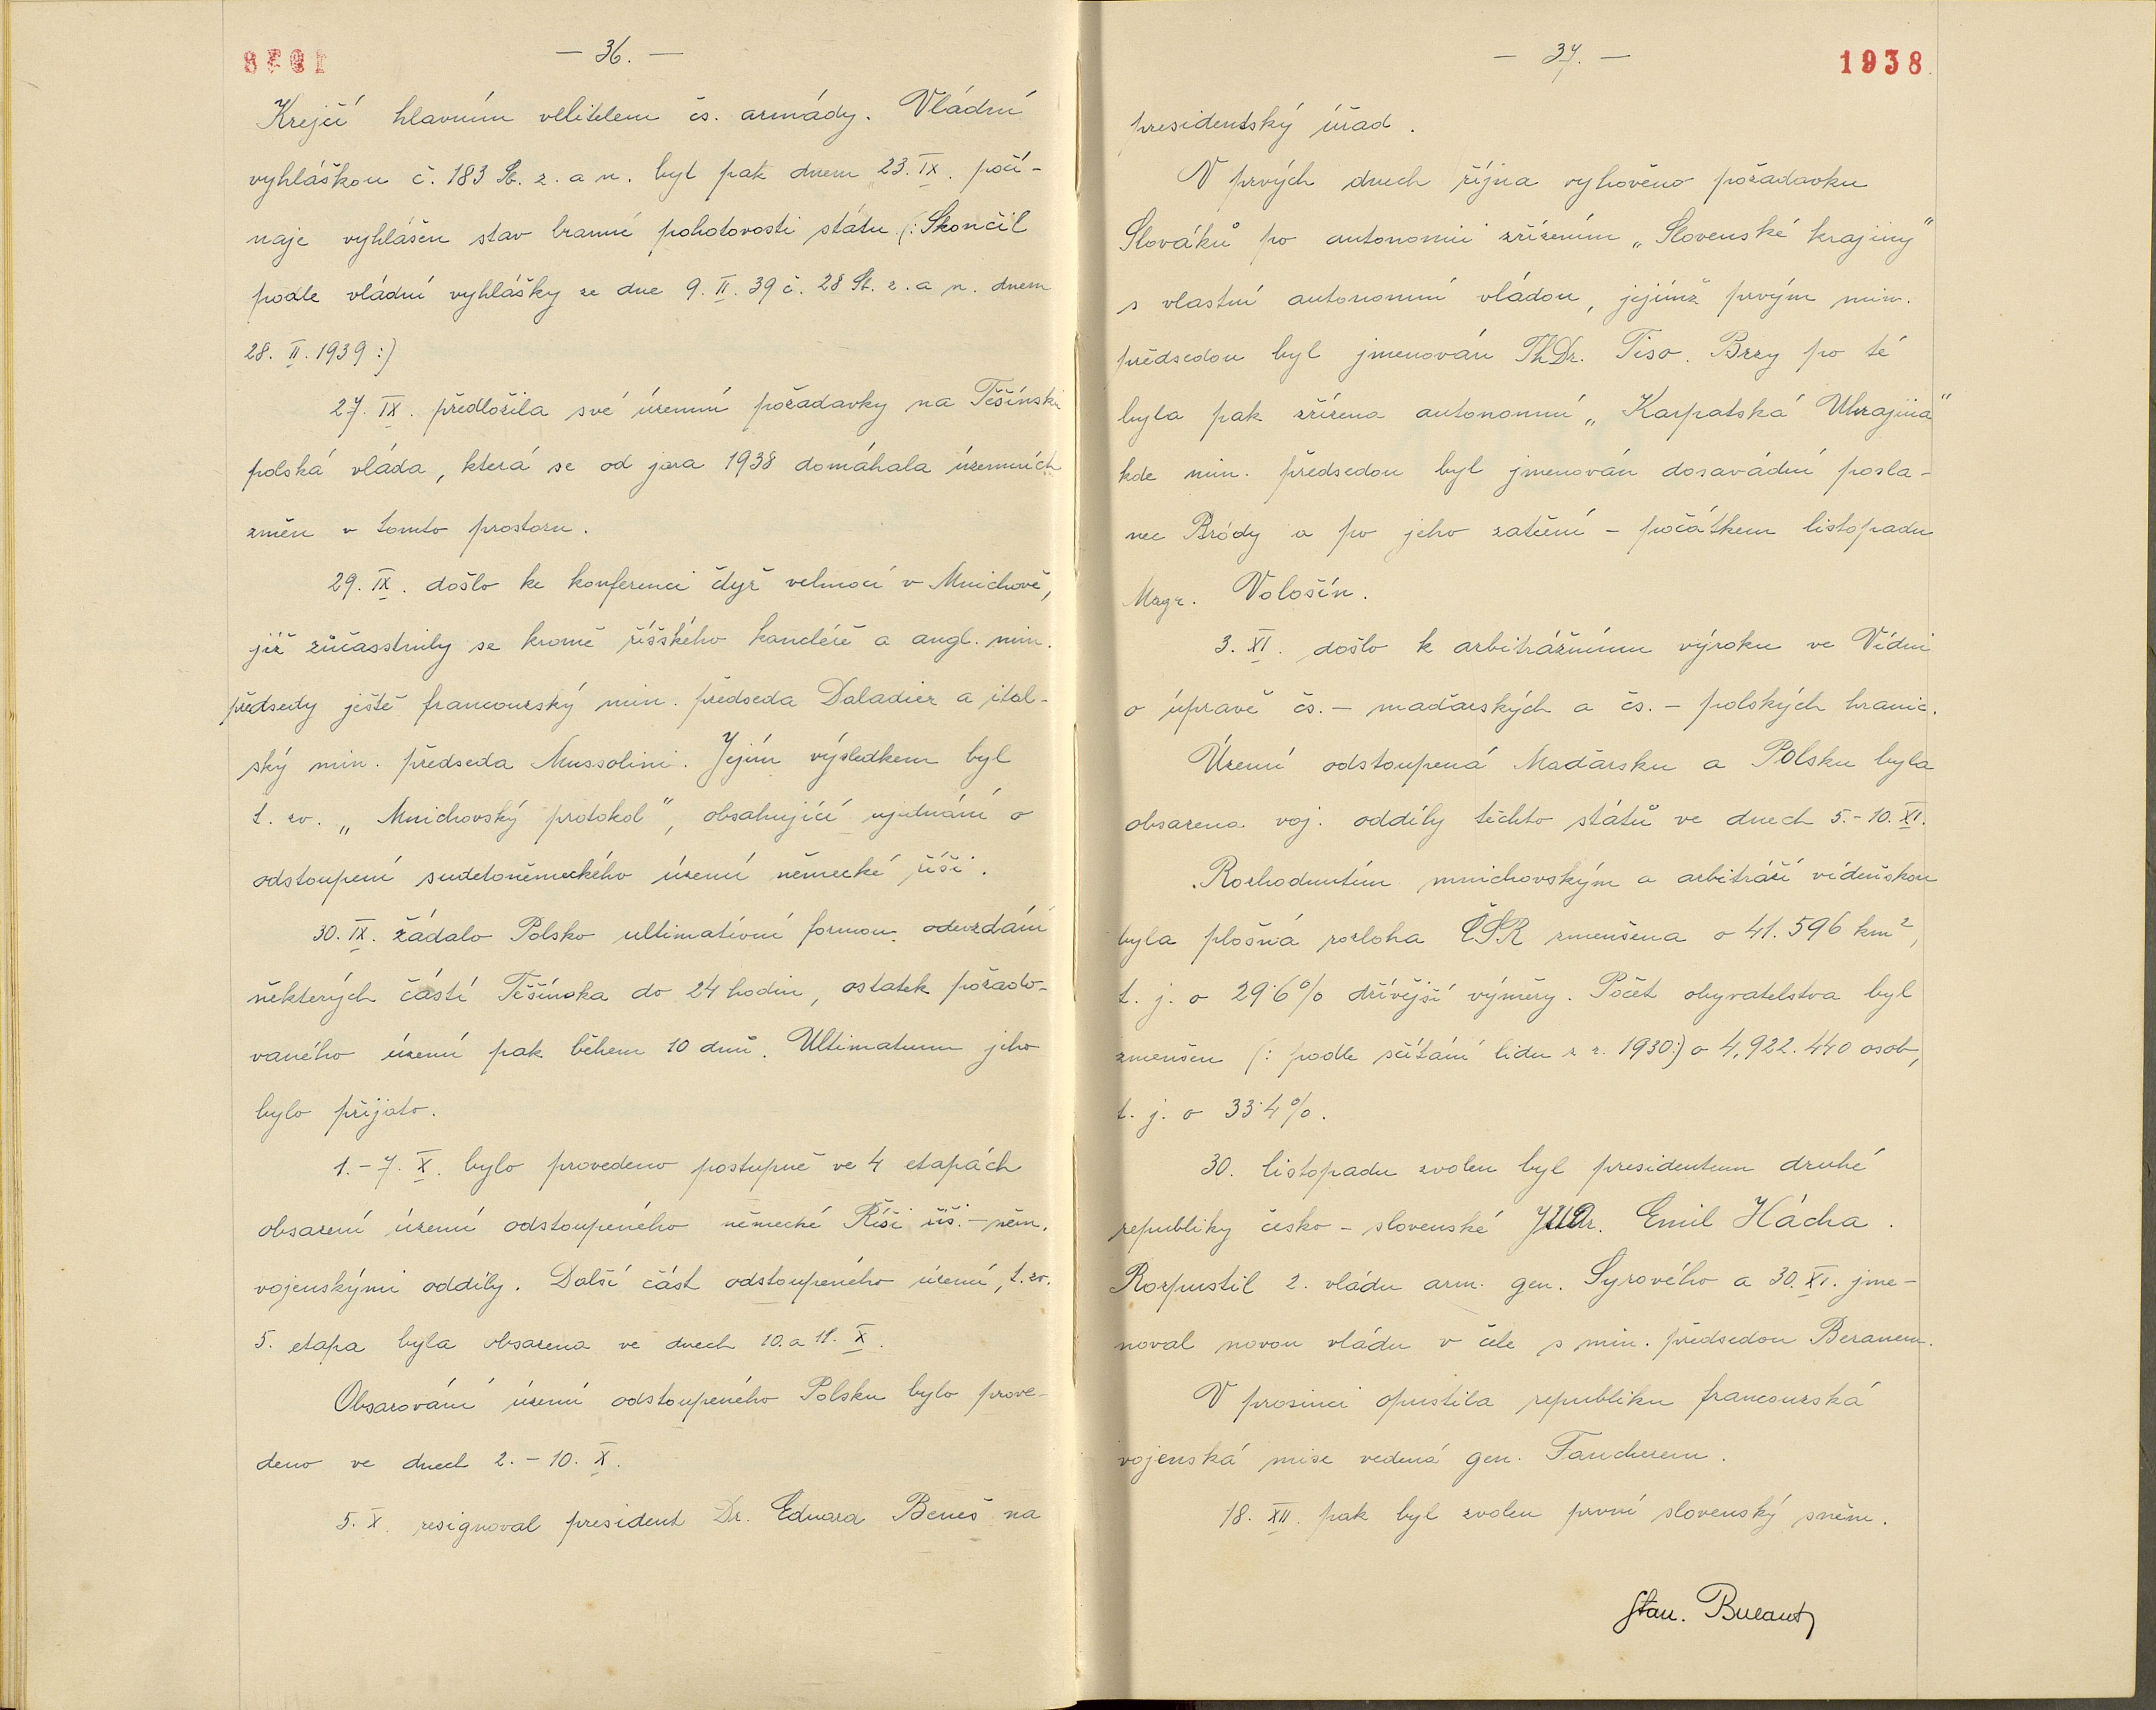 — 36. —
Krejčí hlavním velitelem čs. armády. Vládní
vyhláškou č. 183 Sb. z. a n. byl pak dnem 23. IX. počí-
naje vyhlášen stav branné pohotovosti státu (: Skončil
podle vládní vyhlášky ze dne 9. II. 39 č. 28 Sb. z. a n. dnem
28. II. 1939 :)
27. IX. předložila své územní požadavky na Těšínsku
polská vláda, která se od jara 1938 domáhala územních
změn v tomto prostoru.
29. IX. došlo ke konferenci čtyř velmocí v Mnichově,
jíž zúčasstnily se kromě říšského kancléře a angl. min.
předsedy ještě francouzský min. předseda Daladier a ital-
ský min. předseda Mussolini. Jejím výsledkem byl
t. zv. „Mnichovský protokol", obsahující ujednání o
odstoupení sudetoněmeckého území německé říši.
30. IX. žádalo Polsko ultimativní formou odevzdání
některých částí Těšínska do 24 hodin, ostatek požado-
vaného území pak během 10 dnů. Ultimatum jeho
bylo přijato.
1. – 7. X. bylo provedeno postupně ve 4 etapách
obsazení území odstoupeného německé Říši říš. – něm.
vojenskými oddíly. Další část odstoupeného území, t. zv.
5. etapa byla obsazena ve dnech 10. a 11. X.
Obsazování území odstoupeného Polsku bylo prove-
deno ve dnech 2. – 10. X.
5. X. resignoval president Dr. Eduard Beneš na
— 37. —
1938
presidentský úřad.
V prvých dnech října vyhověno požadavku
Slováků po autonomii zřízením „Slovenské krajiny"
s vlastní autonomní vládou, jejímž prvým min.
předsedou byl jmenován ThDr. Tiso. Brzy po té
byla pak zřízena autonomní „Karpatská Ukrajina"
kde min. předsedou byl jmenován dosavádní posla-
nec Bródy a po jeho zatčení – počátkem listopadu
Msgr. Vološín.
3. XI. došlo k arbitrážnímu výroku ve Vídni
o úpravě čs. – maďarských a čs. – polských hranic.
Území odstoupená Maďarsku a Polsku byla
obsazena voj. oddíly těchto států ve dnech 5. – 10. XI.
Rozhodnutím mnichovským a arbitráží vídeňskou
byla plošná rozloha ČSR zmenšena o 41.596 km²,
t. j. o 29˙6 % dřívější výměry. Počet obyvatelstva byl
zmenšen (: podle sčítání lidu z r. 1930:) o 4,922.440 osob,
t. j. o 33˙4 %.
30. listopadu zvolen byl presidentem druhé
republiky česko – slovenské JUDr. Emil Hácha.
Rozpustil 2. vládu arm. gen. Syrového a 30. XI. jme-
noval novou vládu v čele s min. předsedou Beranem.
V prosinci opustila republiku francouzská
vojenská mise vedená gen. Faucherem.
18. XII. pak byl zvolen první slovenský sněm.
Stan.